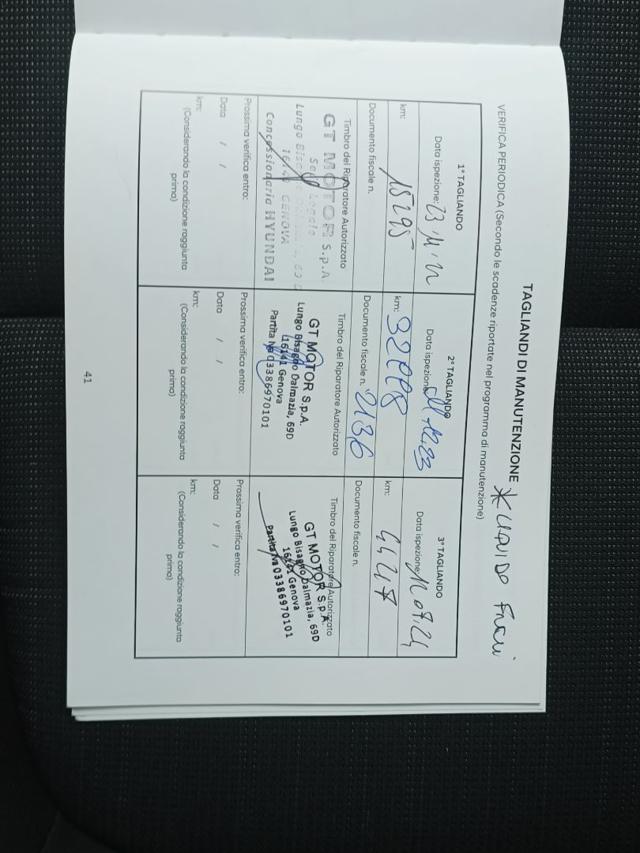 TAGLIANDI DI MANUTENZIONE * LIQUIDO FRENI
VERIFICA PERIODICA (Secondo le scadenze riportate nel programma di manutenzione)
1° TAGLIANDO
Data ispezione: 23/11/22
km: 15295
Documento fiscale n.
Timbro del Riparatore Autorizzato
GT MOTOR S.p.A.
Sede Legale
Lungo Bisagno Dalmazia, 69 D
16141 GENOVA
Concessionaria HYUNDAI
Prossima verifica entro:
Data / /
km:
(Considerando la condizione raggiunta
prima)
2° TAGLIANDO
Data ispezione:
km:
Documento fiscale n. 2136
Timbro del Riparatore Autorizzato
GT MOTOR S.p.A.
Lungo Bisagno Dalmazia, 69D
16141 Genova
Partita Iva 03386970101
Prossima verifica entro:
Data / /
km:
(Considerando la condizione raggiunta
prima)
3° TAGLIANDO
Data ispezione:
km: 44247
Documento fiscale n.
Timbro del Riparatore Autorizzato
GT MOTOR S.p.A.
Lungo Bisagno Dalmazia, 69D
16141 Genova
Partita Iva 03386970101
Prossima verifica entro:
Data / /
km:
(Considerando la condizione raggiunta
prima)
41